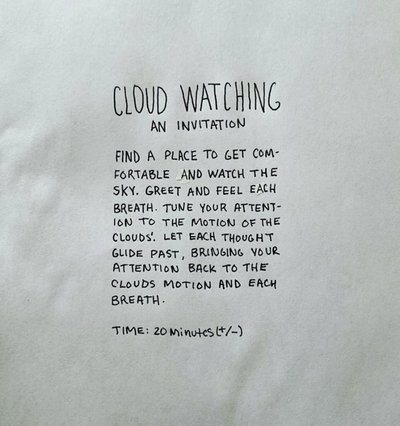 CLOUD WATCHING
AN INVITATION
FIND A PLACE TO GET COM-
FORTABLE AND WATCH THE
SKY. GREET AND FEEL EACH
BREATH. TUNE YOUR ATTENT-
ION TO THE MOTION OF THE
CLOUDS'. LET EACH THOUGHT
GLIDE PAST, BRINGING YOUR
ATTENTION BACK TO THE
CLOUDS MOTION AND EACH
BREATH.
TIME: 20 minutes (+/-)